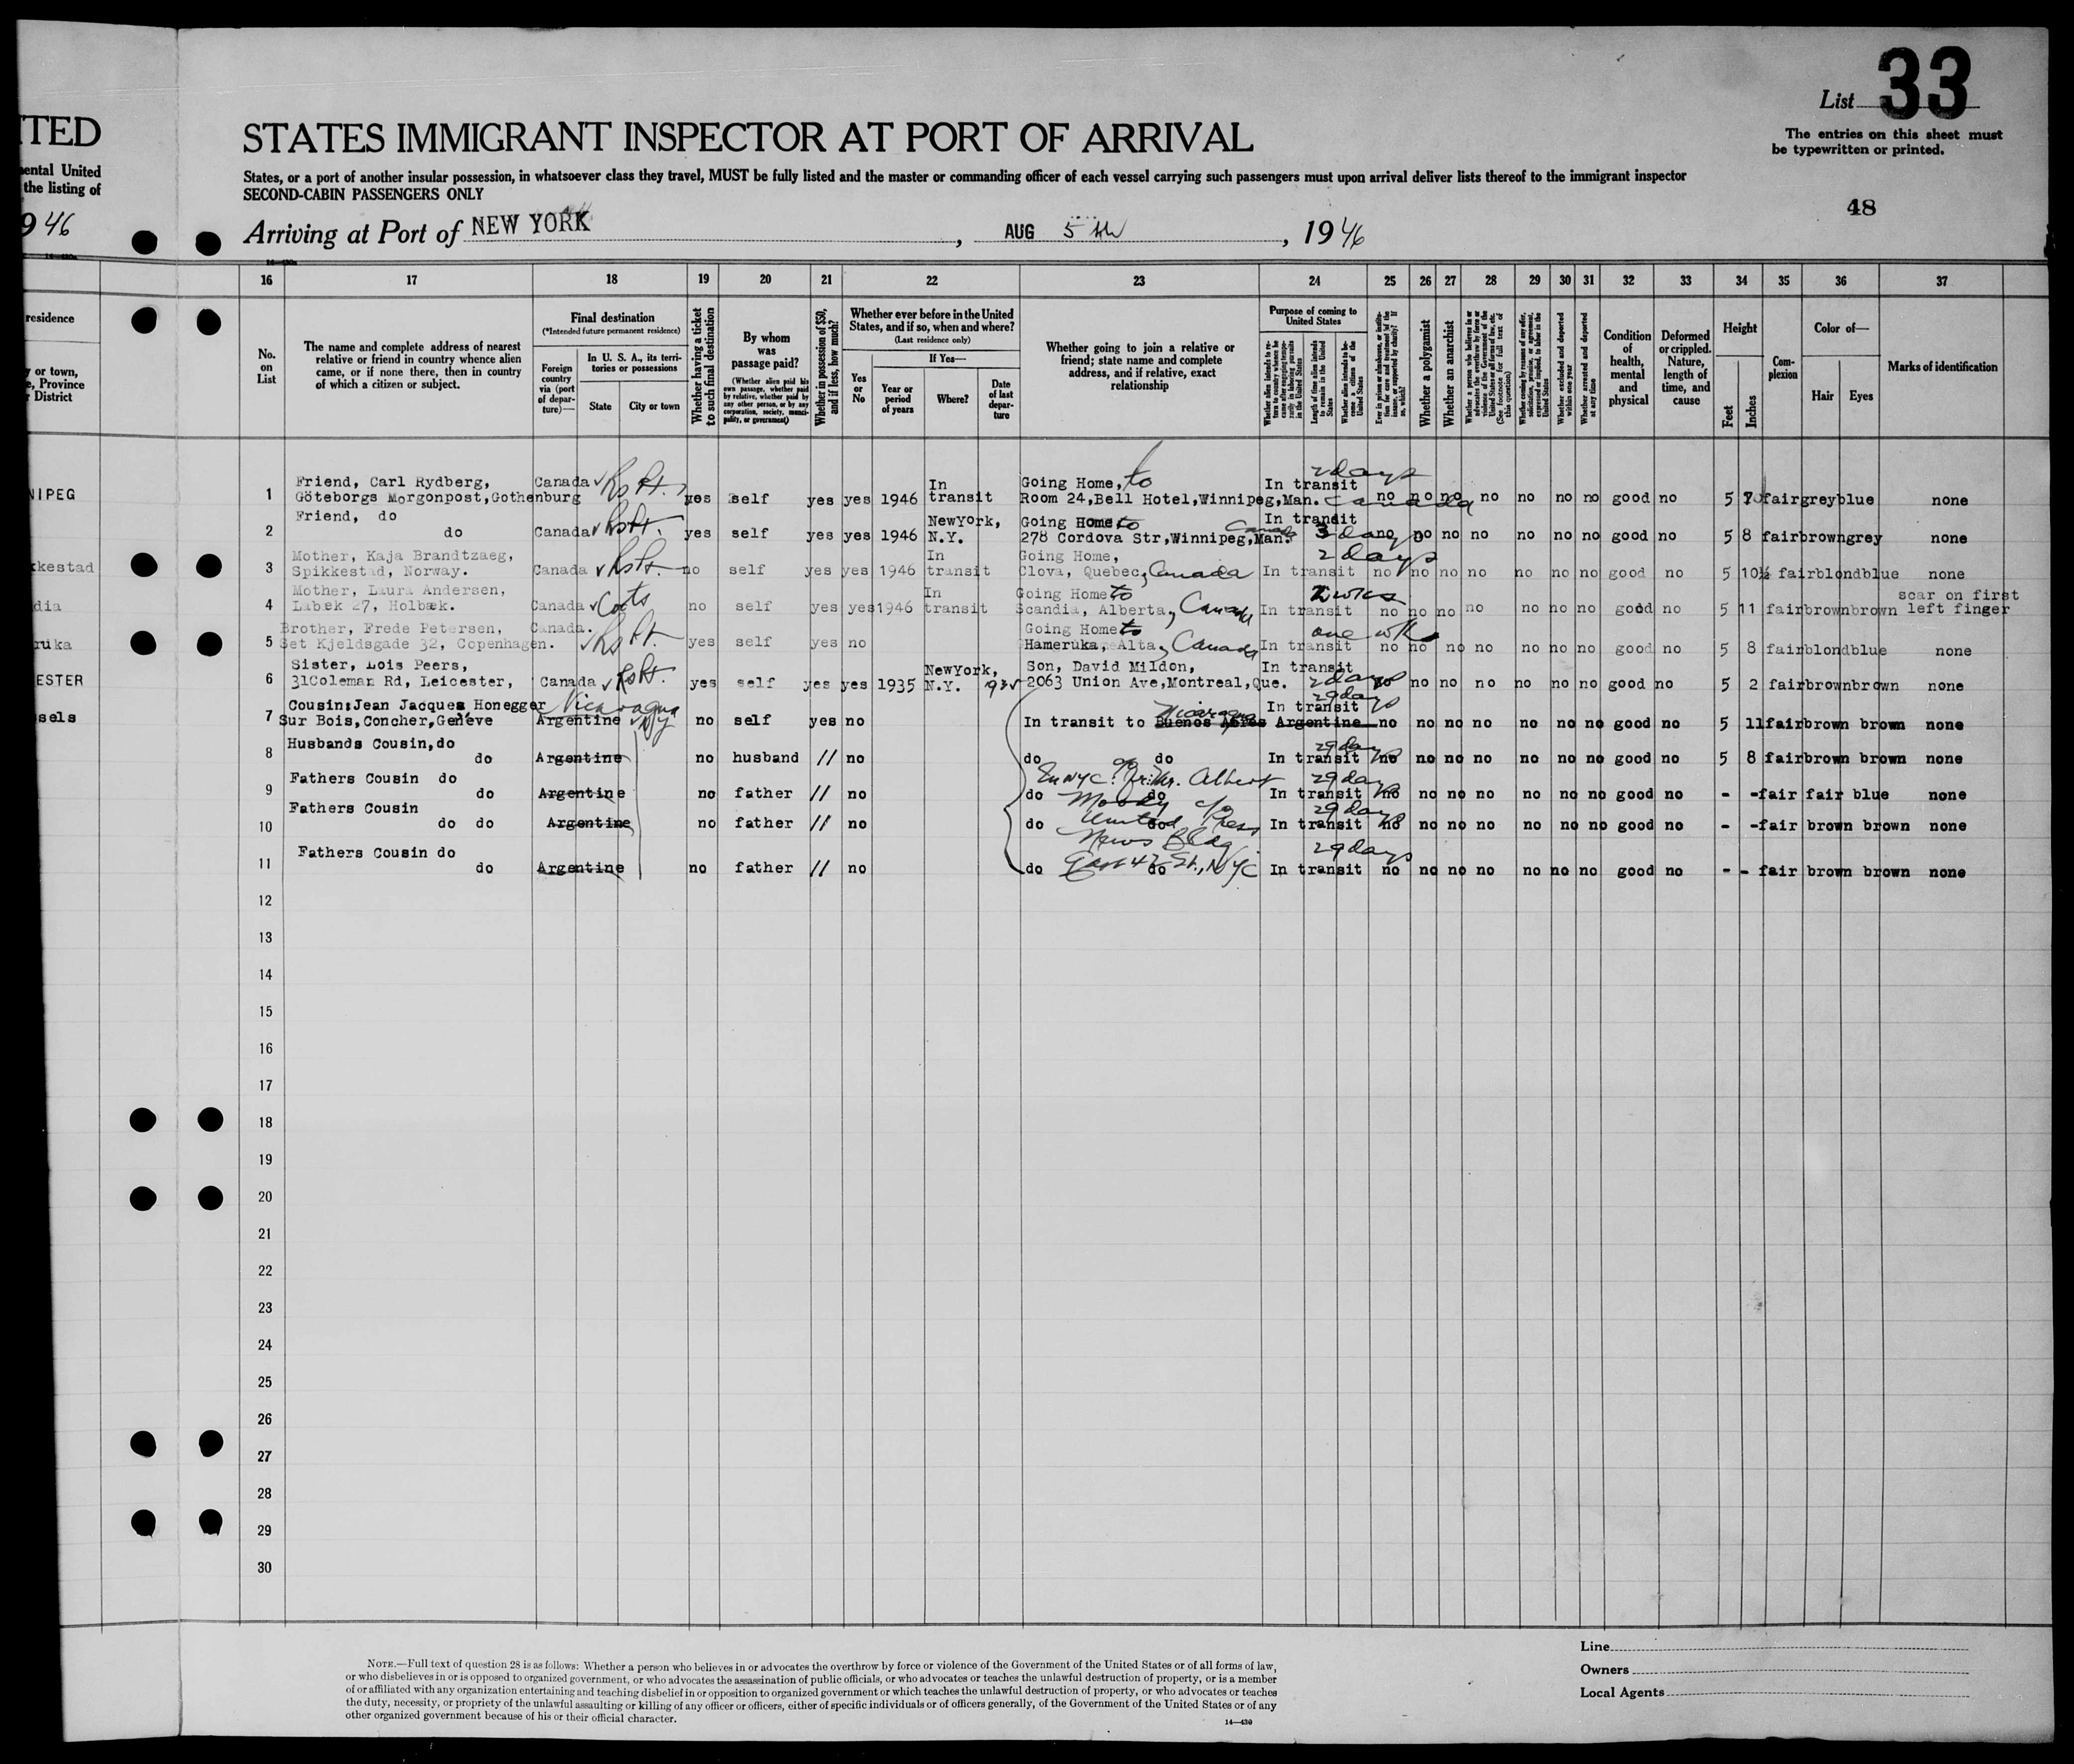 List 33
The entries on this sheet must
be typewritten or printed.
TED
STATES IMMIGRANT INSPECTOR AT PORT OF ARRIVAL
ental United
the listing of
States, or a port of another insular possession, in whatsoever class they travel, MUST be fully listed and the master or commanding officer of each vessel carrying such passengers must upon arrival deliver lists thereof to the immigrant inspector
SECOND-CABIN PASSENGERS ONLY
48
946
Arriving at Port of NEW YORK, AUG 5, 1946
16 17 18 19 20 21 22 23 24 25 26 27 28 29 30 31 32 33 34 35 36 37
residence
or town,
e, Province
District
No.
on
List
The name and complete address of nearest
relative or friend in country whence alien
came, or if none there, then in country
of which a citizen or subject.
Final destination
(*Intended future permanent residence)
Foreign
country
via (port
of depar-
ture)—
In U. S. A., its terri-
tories or possessions
State
City or town
Whether having a ticket
to such final destination
By whom
was
passage paid?
(Whether alien paid his
own passage, whether paid
by relative, whether paid by
any other person, or by any
corporation, society, munici-
pality, or government)
Whether in possession of $50,
and if less, how much?
Whether ever before in the United
States, and if so, when and where?
(Last residence only)
Yes
or
No
If Yes—
Year or
period
of years
Where?
Date
of last
depar-
ture
Whether going to join a relative or
friend; state name and complete
address, and if relative, exact
relationship
Purpose of coming to
United States
Length of time alien intends
to remain in the United
States
Whether alien intends to be-
come a citizen of the
United States
Whether a polygamist
Whether an anarchist
Whether excluded and deported
within one year
Whether arrested and deported
at any time
Condition
of
health,
mental
and
physical
Deformed
or crippled.
Nature,
length of
time, and
cause
Height
Feet
Inches
Com-
plexion
Color of—
Hair
Eyes
Marks of identification
NIPEG
1 Friend, Carl Rydberg, Canada In Going Home, to In transit 2 days
Göteborgs Morgonpost, Gothenburg yes self yes yes 1946 transit Room 24, Bell Hotel, Winnipeg, Man. Canada no no no no no no no good no 5 7 fair grey blue none
2 Friend, do NewYork, Going Home to In transit
do Canada yes self yes yes 1946 N.Y. 278 Cordova Str, Winnipeg, Man. Canada 3 days no no no no no no good no 5 8 fair brown grey none
kkestad
3 Mother, Kaja Brandtzaeg, In Going Home, 2 days
Spikkestad, Norway. Canada no self yes yes 1946 transit Clova, Quebec, Canada In transit no no no no no no no good no 5 10½ fair blond blue none
dia
4 Mother, Laura Andersen, In Going Home to 2 wks scar on first
Labæk 27, Holbæk. Canada no self yes yes 1946 transit Scandia, Alberta, Canada In transit no no no no no no no good no 5 11 fair brown brown left finger
ruka
5 Brother, Frede Petersen, Canada. Going Home to one wk
Set Kjeldsgade 32, Copenhagen. yes self yes no Hameruka, Alta, Canada In transit no no no no no no no good no 5 8 fair blond blue none
ESTER
6 Sister, Lois Peers, NewYork, Son, David Mildon, In transit
31 Coleman Rd, Leicester, Canada yes self yes yes 1935 N.Y. 1935 2063 Union Ave, Montreal, Que. 2 days no no no no no no no good no 5 2 fair brown brown none
sels
7 Cousin: Jean Jacques Honegger Nicaragua In transit 29 days
Sur Bois, Concher, Genève Argentine NY no self yes no In transit to Nicaragua Buenos Aires Argentine no no no no no no no good no 5 11 fair brown brown none
8 Husbands Cousin, do 29 days
do Argentine no husband // no do do In transit no no no no no no no good no 5 8 fair brown brown none
9 Fathers Cousin do In NYC. Albert 29 days
do Argentine no father // no do Moody c/o do In transit no no no no no no no good no - - fair fair blue none
10 Fathers Cousin United Press 29 days
do do Argentine no father // no do do In transit no no no no no no no good no - - fair brown brown none
News Bldg
11 Fathers Cousin do 29 days
do Argentine no father // no do East 42 St., NYC do In transit no no no no no no no good no - - fair brown brown none
12
13
14
15
16
17
18
19
20
21
22
23
24
25
26
27
28
29
30
Line
Owners
Local Agents
NOTE.—Full text of question 28 is as follows: Whether a person who believes in or advocates the overthrow by force or violence of the Government of the United States or of all forms of law,
or who disbelieves in or is opposed to organized government, or who advocates the assassination of public officials, or who advocates or teaches the unlawful destruction of property, or is a member
of or affiliated with any organization entertaining and teaching disbelief in or opposition to organized government or which teaches the unlawful destruction of property, or who advocates or teaches
the duty, necessity, or propriety of the unlawful assaulting or killing of any officer or officers, either of specific individuals or of officers generally, of the Government of the United States or of any
other organized government because of his or their official character.
14—430